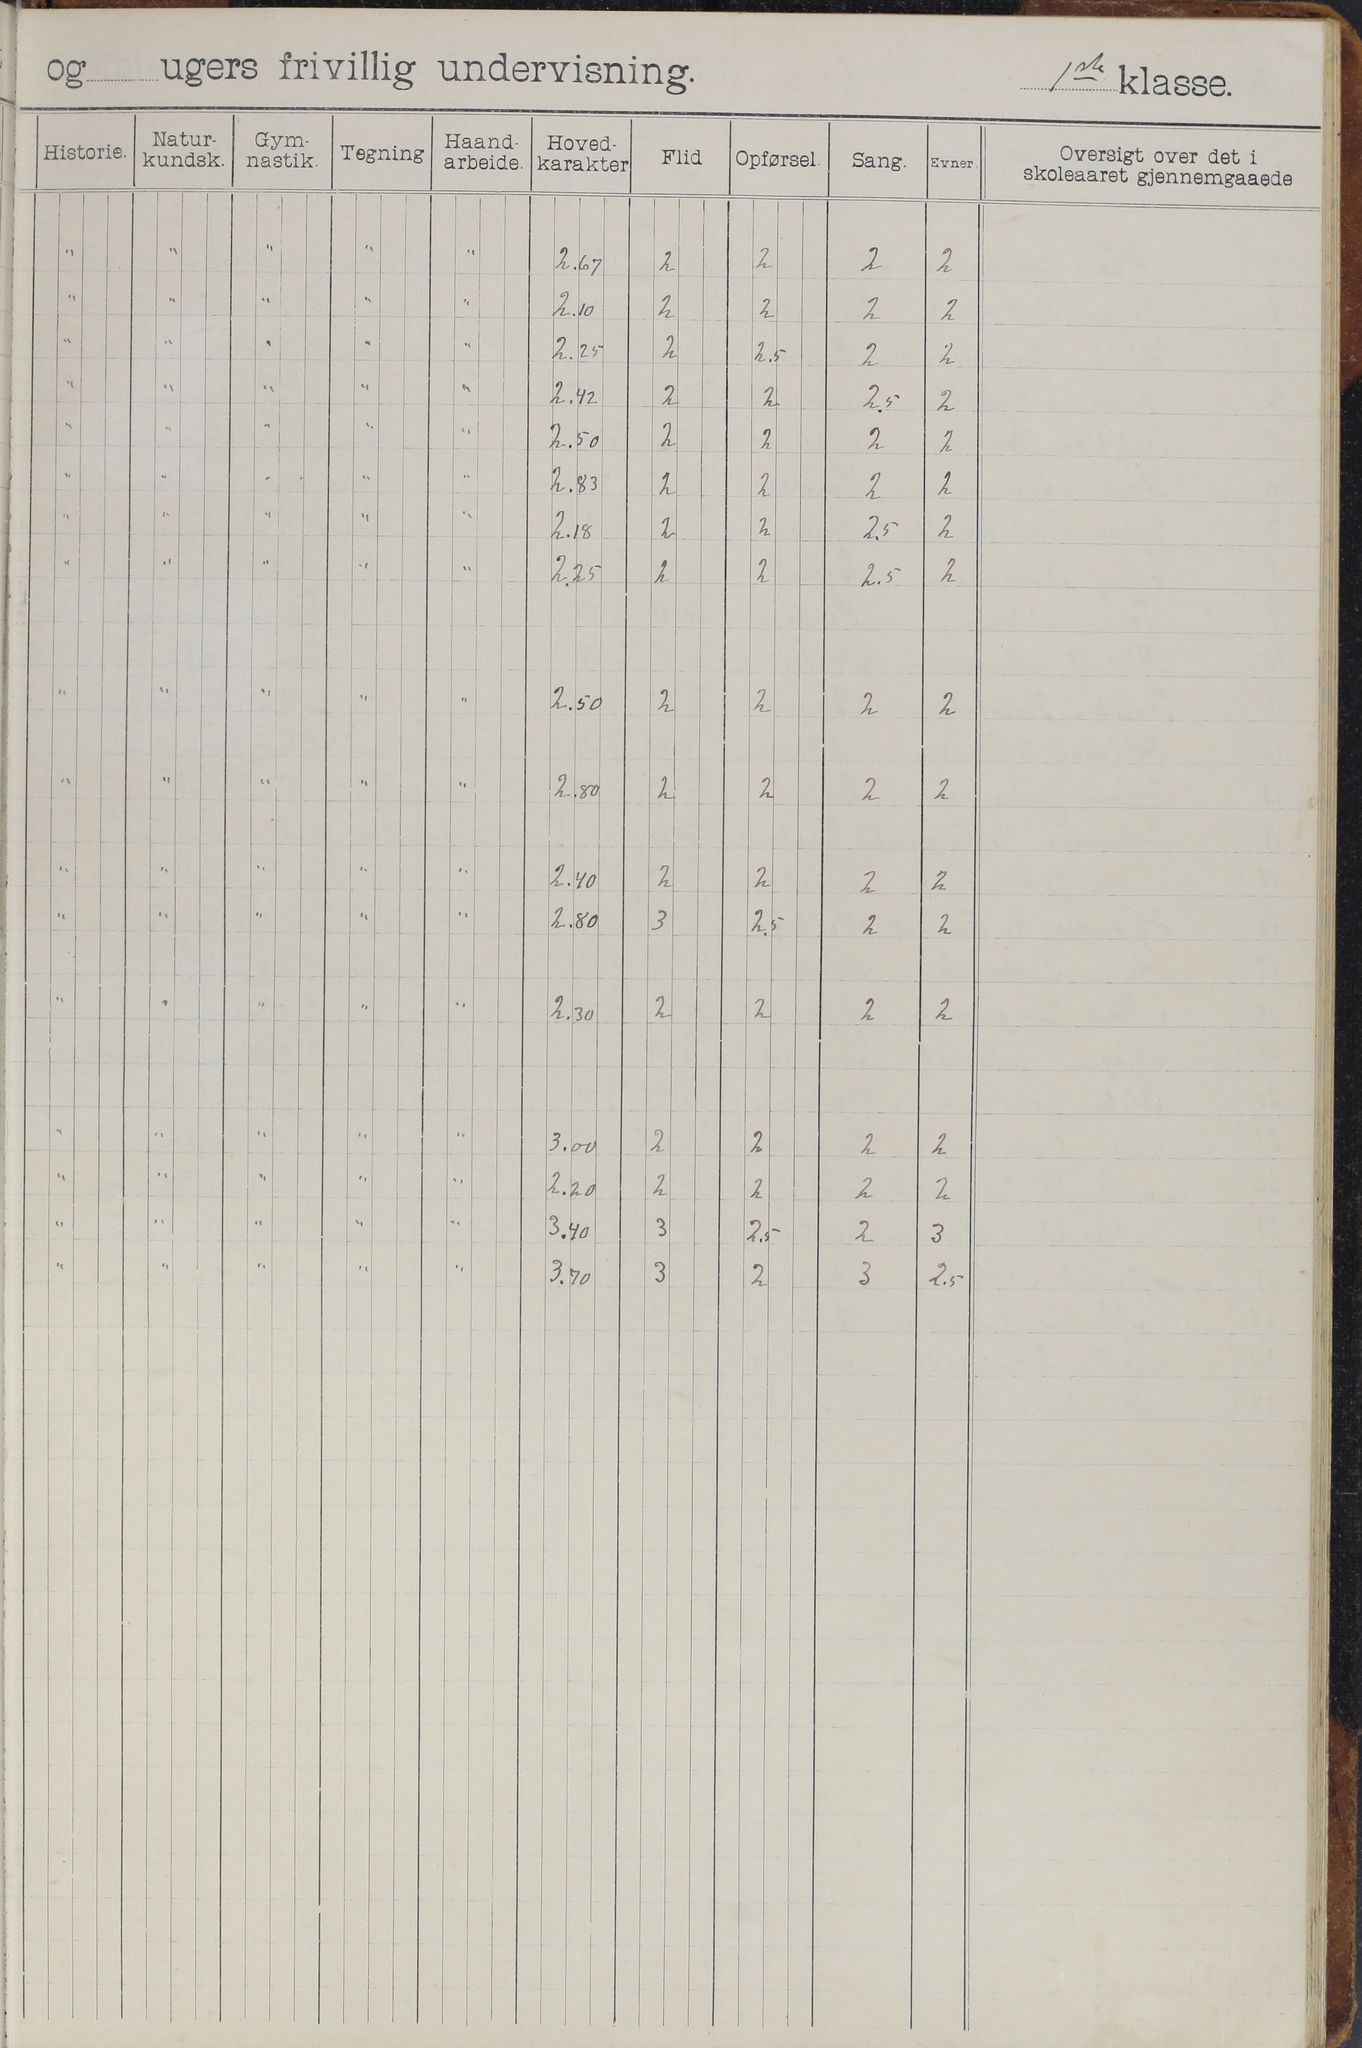 og ugers frivillig undervisning. 1ste klasse.
Historie. Natur-kundsk. Gym-nastik. Tegning Haand-arbeide. Hoved-karakter Flid Opførsel. Sang. Evner. Oversigt over det i skoleaaret gjennemgaaede
" " " " " 2.67 2 2 2 2
" " " " " 2.10 2 2 2 2
" " " " " 2.25 2 2.5 2 2
" " " " " 2.42 2 2 2.5 2
" " " " " 2.50 2 2 2 2
" " " " " 2.83 2 2 2 2
" " " " " 2.18 2 2 2.5 2
" " " " " 2.25 2 2 2.5 2
" " " " " 2.50 2 2 2 2
" " " " " 2.80 2 2 2 2
" " " " " 2.40 2 2 2 2
" " " " " 2.80 3 2.5 2 2
" " " " " 2.30 2 2 2 2
" " " " " 3.00 2 2 2 2
" " " " " 2.20 2 2 2 2
" " " " " 3.40 3 2.5 2 3
" " " " " 3.70 3 2 3 2.5